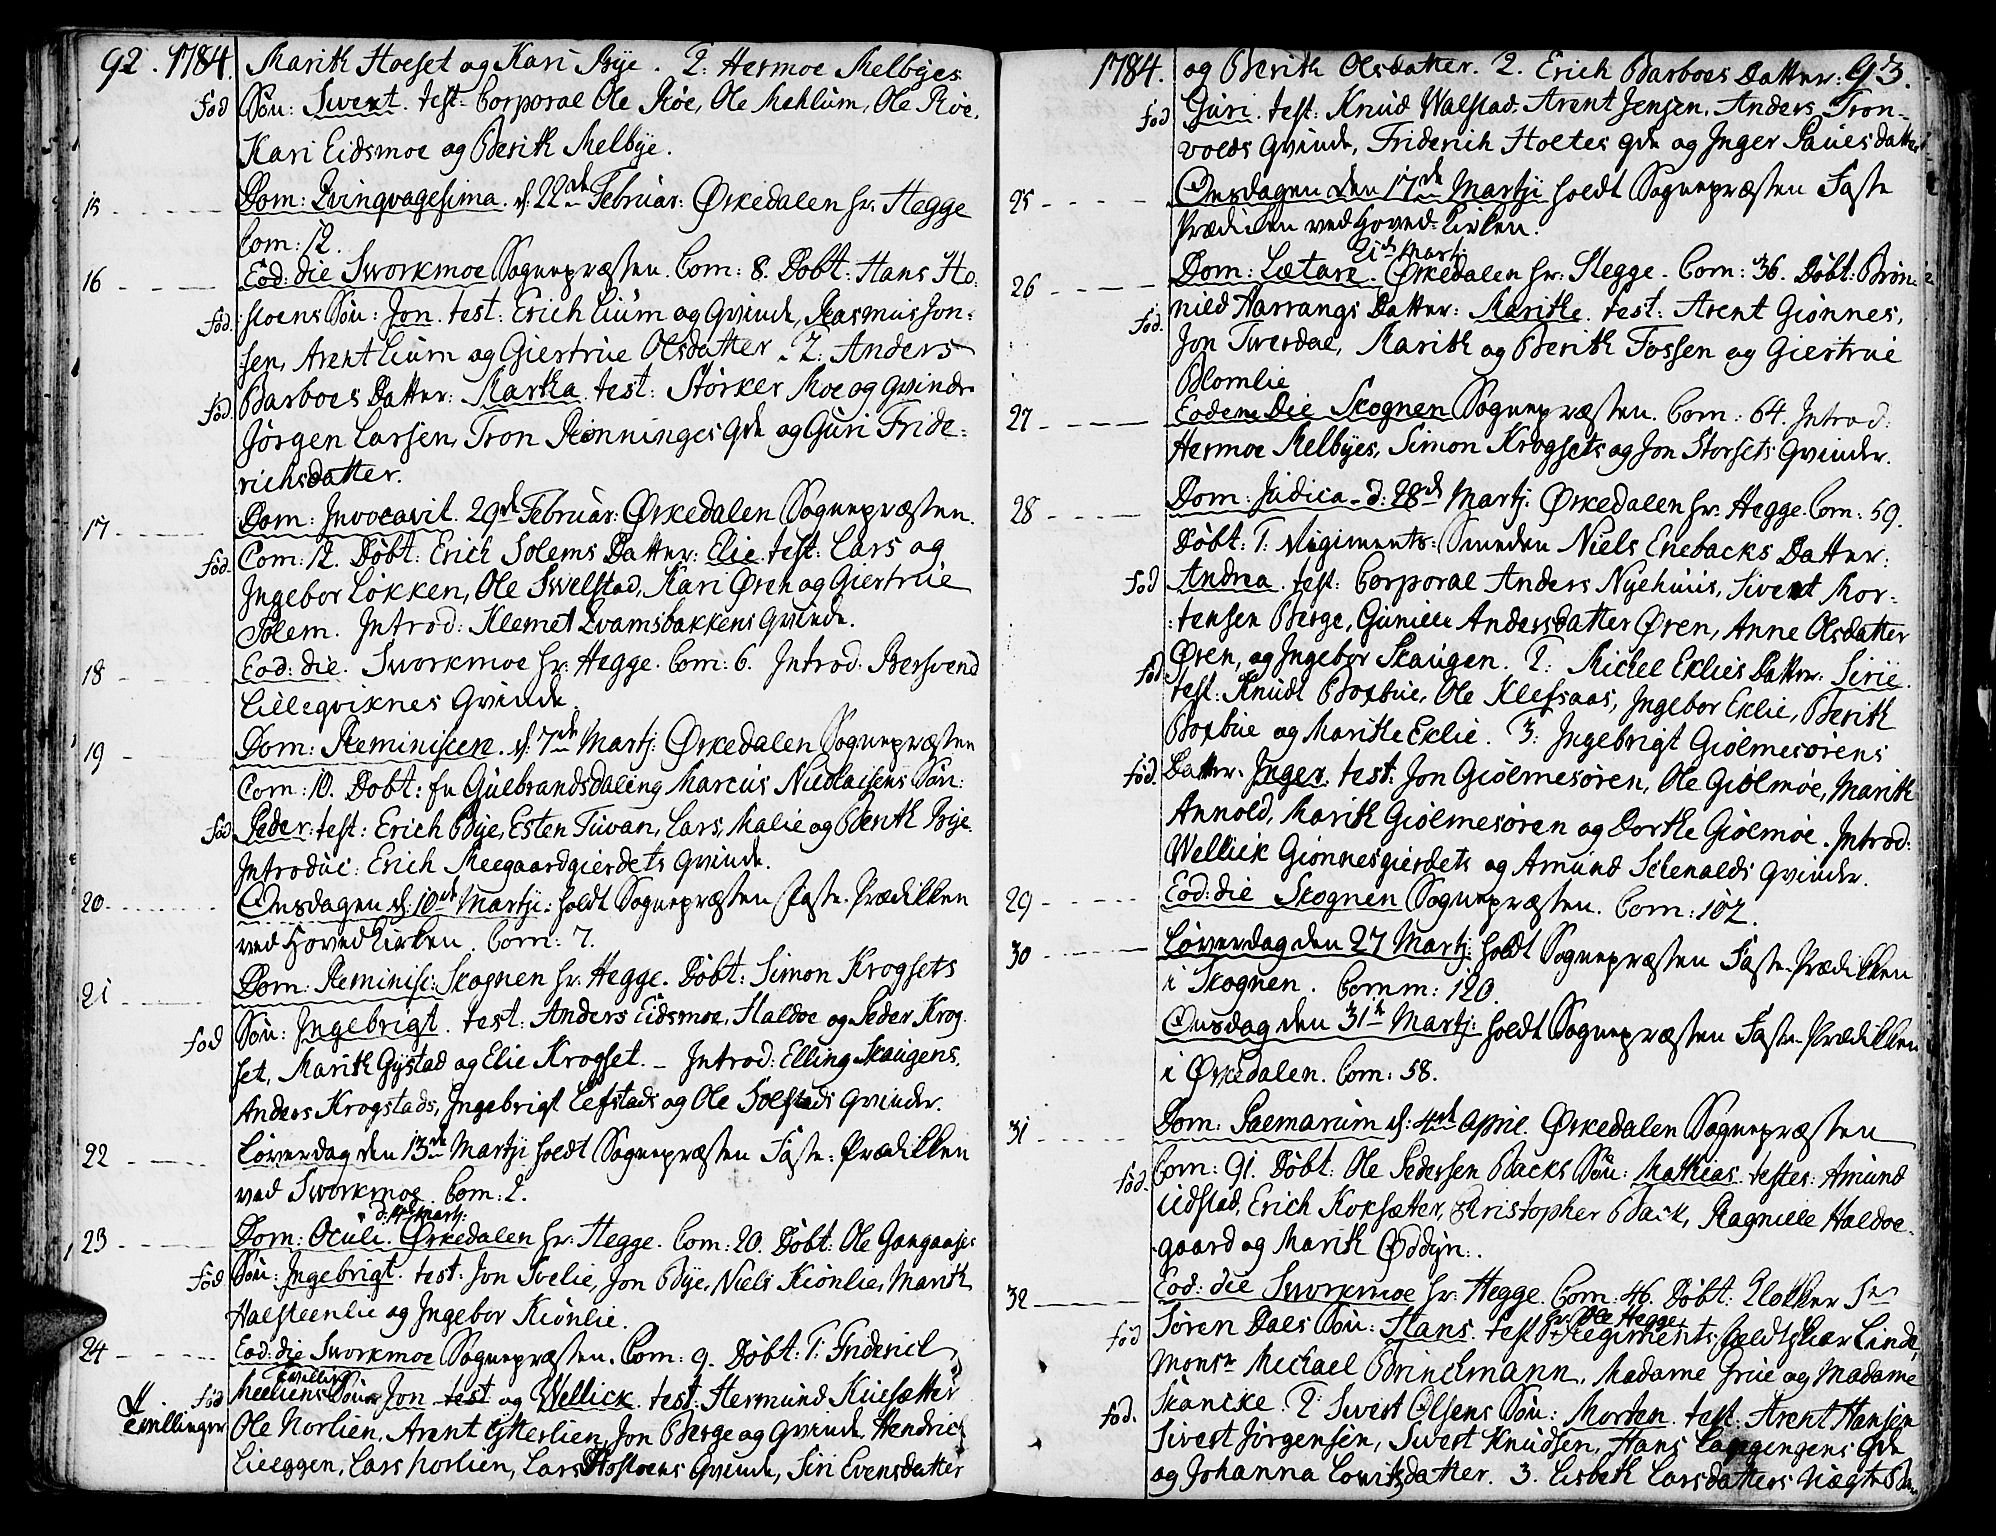 92. 1784. Marith Hoeset og Kari Bye. 2: Hermoe Melbyes
fød Søn: Sivert. test: Corporal Ole Røe, Ole Mehlum, Ole Røe,
Kari Eidsmoe og Berith Melbye.
15 Dom: Qvinqvagesima. d: 22de Februar: Ørkedalen hr: Hegge
Com: 12.
16 Eod: die Sworkmoe Sognepræsten. Com: 8. Døbt: Hans Ho-
fød. stoens Søn: Jon. test: Erich Lium og Qvinde, Rasmus Jon-
sen, Arent Lium og Giertrue Olsdatter. 2: Anders
fød. Barboes Datter: Martha. test: Størker Moe og Qvinde
Jørgen Larsen, Tron Rønninges Qde og Guri Fride-
richsdatter.
17 Dom: Invocavit. 29de Februar: Ørkedalen Sognepræsten.
fød. Com: 12. Døbt: Erich Solems Datter: Elie. test: Lars og
Ingebor Løkken, Ole Swelstad, Kari Øren og Giertrue
Solem. Introd: Klemet Qvamsbakkens Qvinde.
18 Eod: die. Sworkmoe hr: Hegge. Com: 6. Introd: Bersvend
Lilleqviknes Qvinde.
19 Dom: Reminiscere. d: 7de Martj: Ørkedalen Sognepræsten
Com: 10. Døbt: en Gulbrandsdaling Marcus Nicolaisens Søn:
fød. Peder: test: Erich Bye, Esten Tuvan, Lars Malie og Berith Bye.
Introduc: Erich Meegaardgierdets Qvinde.
20 Onsdagen d: 10de Martji: holdt Sognepræsten Faste-Prædikken
ved Hovedkirken. Com: 7.
21 Dom: Reminisc: Skognen hr: Hegge. Døbt: Simon Krogsets
fød Søn: Ingebrigt. test: Anders Eidsmoe, Haldoe og Peder Krog-
set, Marith Gystad og Elie Krogset. - Introd: Elling Skaugens,
Anders Krogstads, Ingebrigt Lefstads og Ole Solstads Qvinder.
22 Løverdag den 13de Martji holdt Sognepræsten Faste-Prædikken
ved Sworkmoe. Com: 2.
d: 14de Martj:
23 Dom: Oculi. Ørkedalen hr: Hegge. Com: 20. Døbt: Ole Gangaases
fød Søn: Ingebrigt. test: Jon Svelie, Jon Bye, Niels Kiønlie, Marith
Halsteenlie og Ingebor Kiønlie.
24 Eod: die Sworkmoe Sognepræsten. Com: 9. Døbt: 1: Friderich
fød Sønner Jon test og Wellick. test: Hermund Kuesætter
Tvillinger Ole Norlien, Arent Ytterlien, Jon Berge og Qvinde, Hendrich
Lieeggen, Lars Norlien, Lars Hostoens Qvinde, Siri Evensdatter
1784. og Berith Olsdatter. 2. Erich Barboes Datter: 93.
fød Guri. test: Knud Walstad, Arent Jensen, Anders Tron-
volds Qvinde, Friderich Holtes Qde og Inger Paulsdatter
25 Onsdagen den 17de Martji holdt Sognepræsten Faste
Prædiken ved Hoved-Kirken.
21de Martj
26 Dom: Lætare. Ørkedalen hr: Hegge. Com: 36. Døbt: Brøn-
fød. nild Aarrangs Datter: Marithe. test: Arent Giønnes,
Jon Tverdal, Marith og Berith Fossen og Giertrue
Blomlie
27 Eodem Die Skognen Sognepræsten. Com: 64. Introd:
Hermoe Melbyes, Simon Krogsets og Jon Storsets Qvinder.
28 Dom: Judica. d: 28de Martj: Ørkedalen hr: Hegge. Com: 59.
Døbt: 1: Regiments-Smeden Niels Enebacks Datter:
fød Andrea. test: Corporal Anders Nyehuus, Sivert Mor-
tensen Berge, Gunild Andersdatter Øren, Anne Olsdatter
Øren, og Ingebor Skaugen. 2: Mickel Eklies Datter: Sirie.
fød test: Knudt Boxbue, Ole Klefsaas, Ingebor Eklie, Berith
Boxbue og Marithe Eklie. 3: Ingebrigt Giølmesørens
fød. Datter: Inger. test: Jon Giølmesøren, Ole Giølmøe, Marith
Annold, Marith Giølmesøren og Dorthe Giølmøe. Introd:
Wellick Giønnesgierdets og Amund Selenalds Qvinder.
29 Eod: die Skognen Sognepræsten. Com: 102.
30 Løverdag den 27 Martj: holdt Sognepræsten Faste-Prædikken
i Skognen. Comm: 120.
Onsdag den 31te Martj: holdt Sognepræsten Faste-Prædikken
i Ørkedalen. Com: 58.
31 Dom: Palmarum d: 4de April. Ørkedalen Sognepræsten
fød. Com: 91. Døbt: Ole Pedersen Backs Søn: Mathias. testes: Amund
Udstad, Erich Koksætter, Christopher Back, Ragnild Haldoe-
gaard og Marith Øddyn:.
32 Eod: die Sworkmoe hr: Hegge. Com: 46. Døbt: Klokker Sr
hr: Ole Hegge
fød Søren Dals Søn: Hans. test: Regiments-Feldtskiær Linde,
Monsr Michael Brinchmann, Madame Irue og Madame
fød. Skancke. 2: Sivert Olsens Søn: Morten. test: Arent Hansen
Sivert Jørgensen, Sivert Knudsen, Hans Langengens Qde
og Johanna Lowitsdatter. 3. Lisbeth Larsdatters